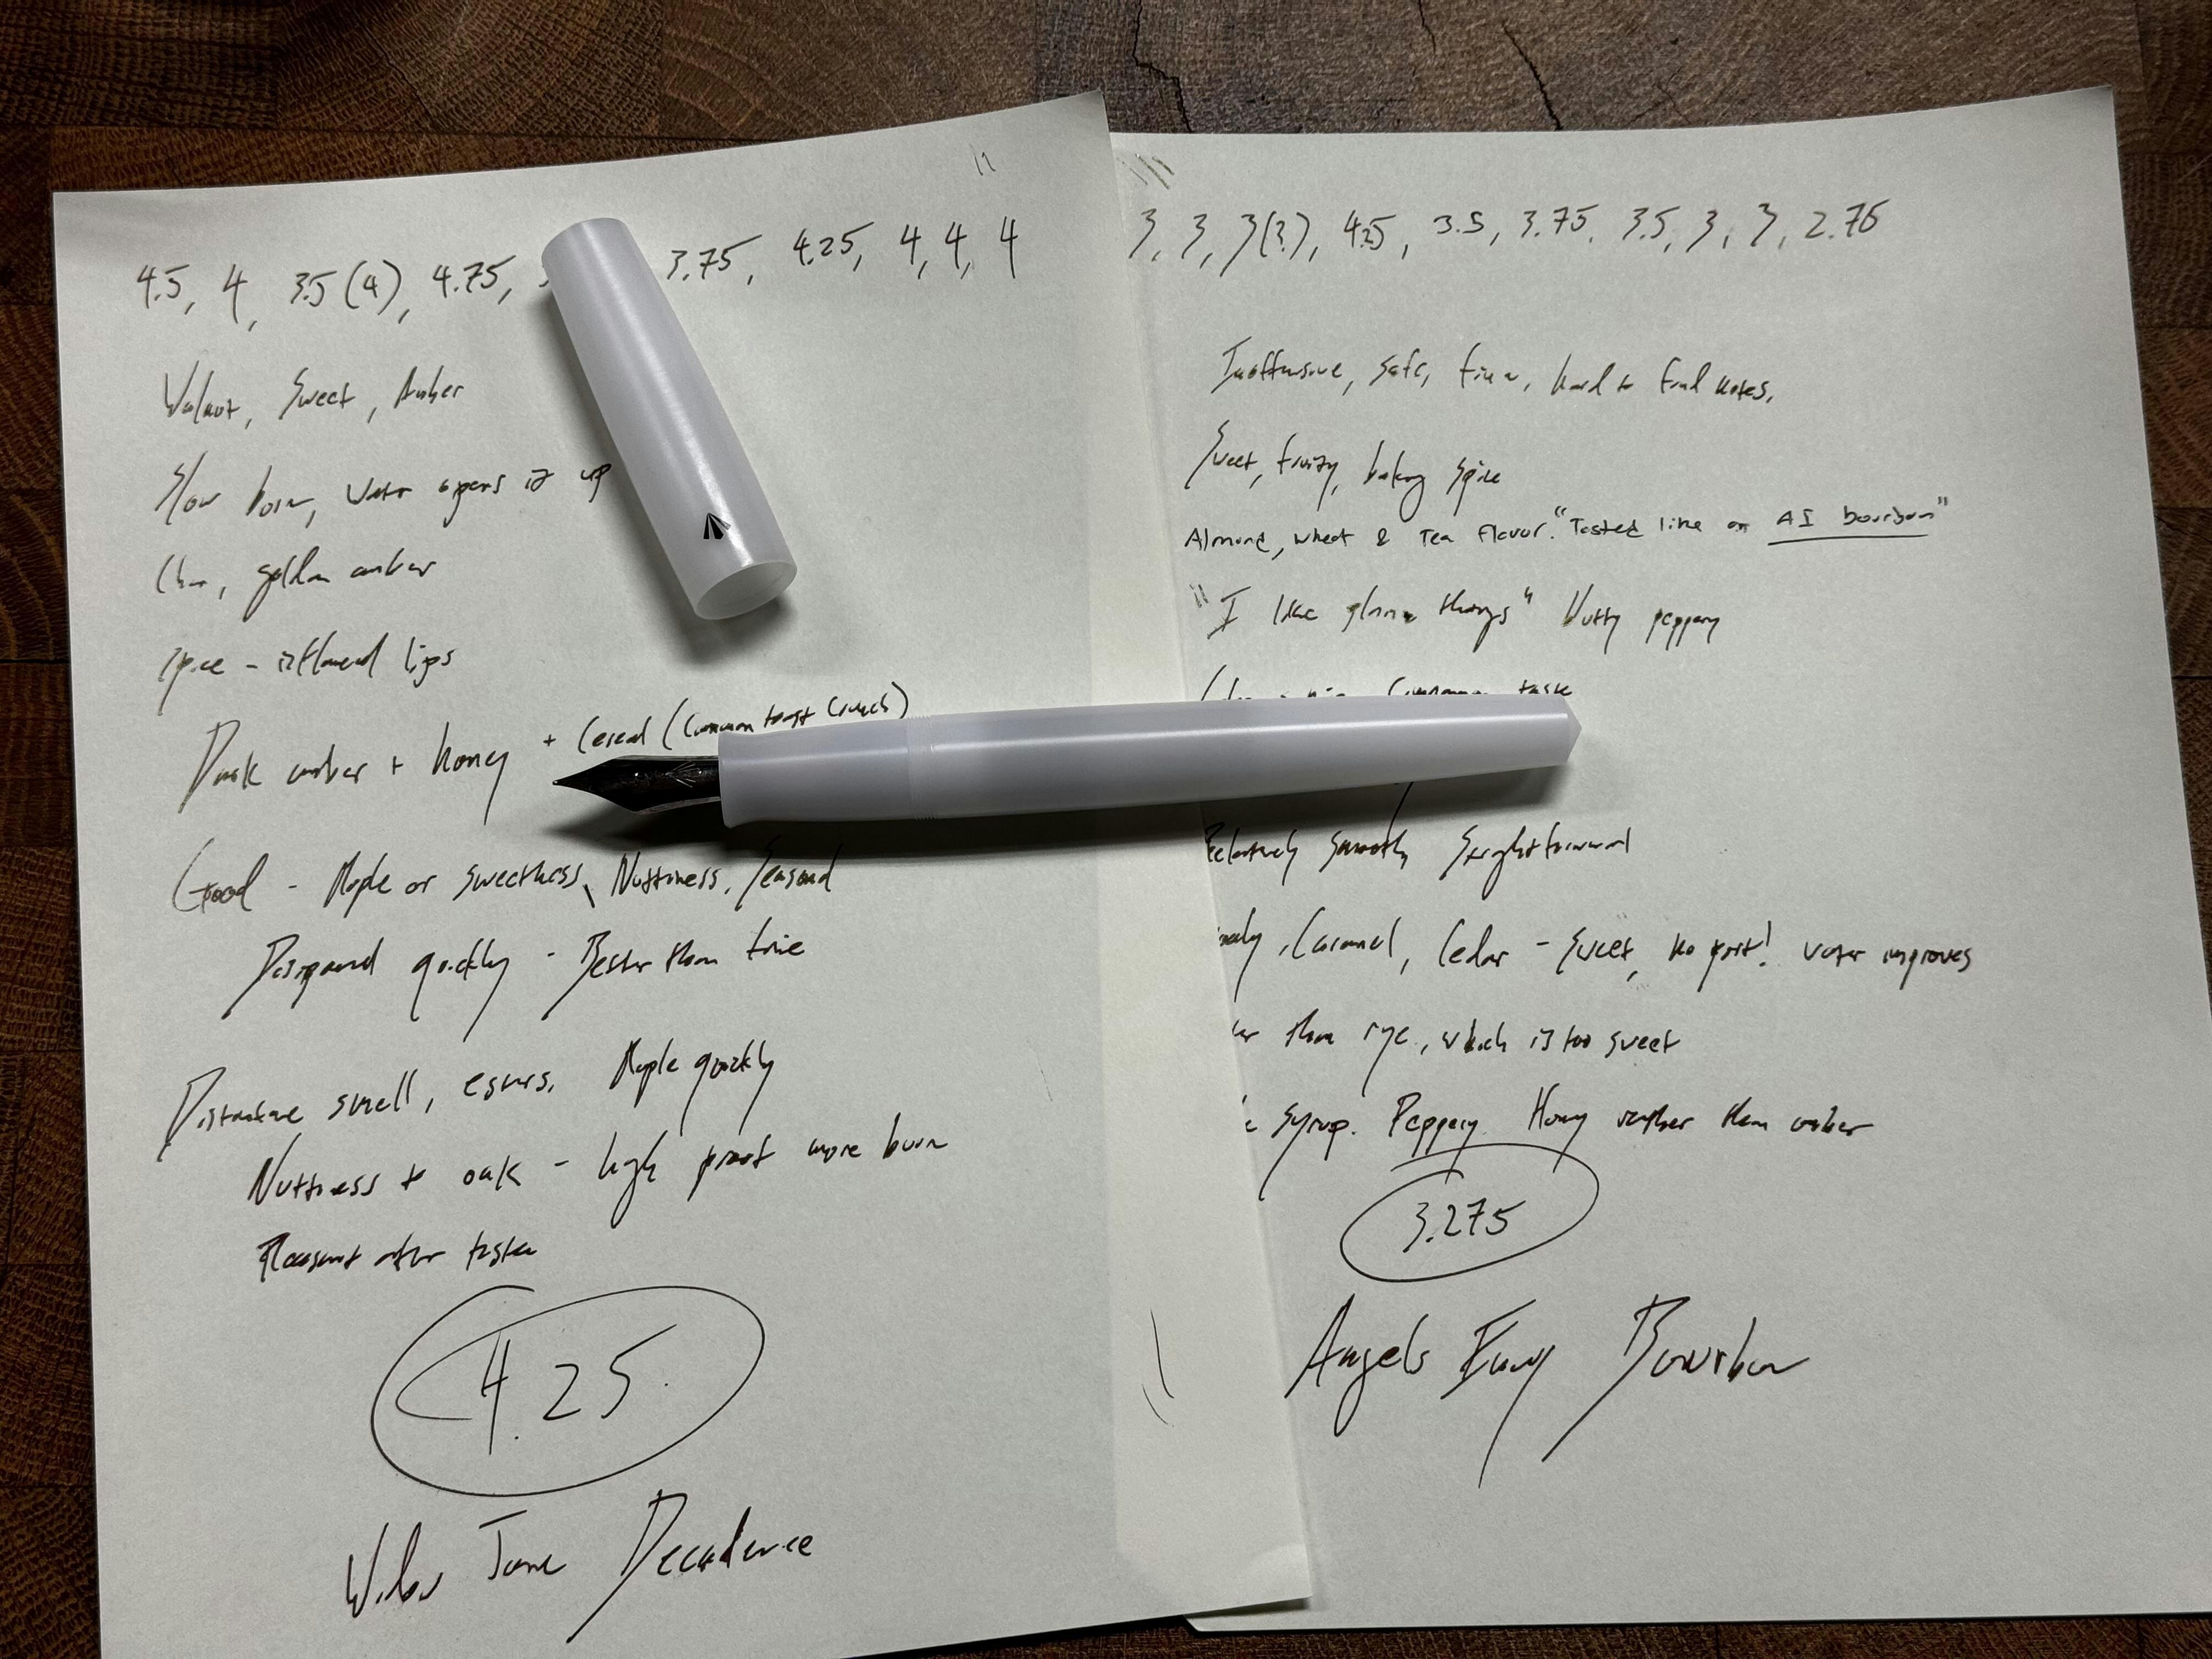 4.5, 4, 3.5 (4), 4.75, 3.75, 4.25, 4, 4, 4
Walnut, Sweet, Amber
Slow burn, water opens it up
golden amber
spice - lips
Dark amber + honey + Cereal (Cinnamon toast Crunch)
Good - Maple or sweetness, Nuttiness, Seasoned
quickly - Better than fine
Distinctive smell, esters. Maple quickly
Nuttiness + oak - high proof more burn
Pleasant after taste
4.25
Decadence
3, 3, 3(?), 4.25, 3.5, 3.75, 3.5, 3, 3, 2.75
Inoffensive, safe, fine, hard to find notes,
Sweet, fruity, baking spice
Almond, wheat & Tea flavor. "Tasted like an AI bourbon"
"I like things" Nutty peppery
Relatively smooth, Straightforward
Caramel, Cedar - sweet, water improves
than rye, which is too sweet
syrup. Peppery. Honey rather than amber
3.275
Angels Envy Bourbon